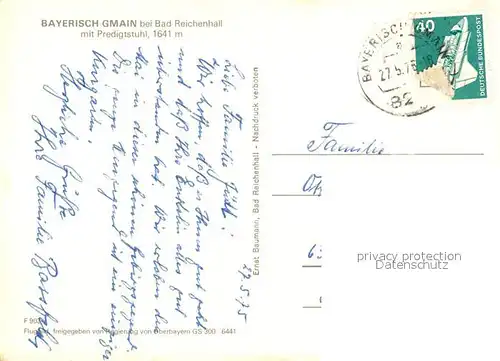 BAYERISCH GMAIN bei Bad Reichenhall
mit Predigtstuhl, 1641 m
22.5.75
Liebe Familie
Wir hoffen, daß es Ihnen gut geht
und daß Ihre Enkelin alles gut
überstanden hat. Wir erleben den
Mai in dieser schönen Gebirgsgegend.
Die ganze Umgegend ist ein einziger
Kurgarten.
Herzliche Grüße
Ihre Familie
F 90
freigegeben von Regierung von Oberbayern GS 300 6441
Ernst Baumann, Bad Reichenhall - Nachdruck verboten
BAYERISCH GMAIN
27.5.75
82
40
DEUTSCHE BUNDESPOST
Familie
privacy protection
watermarks